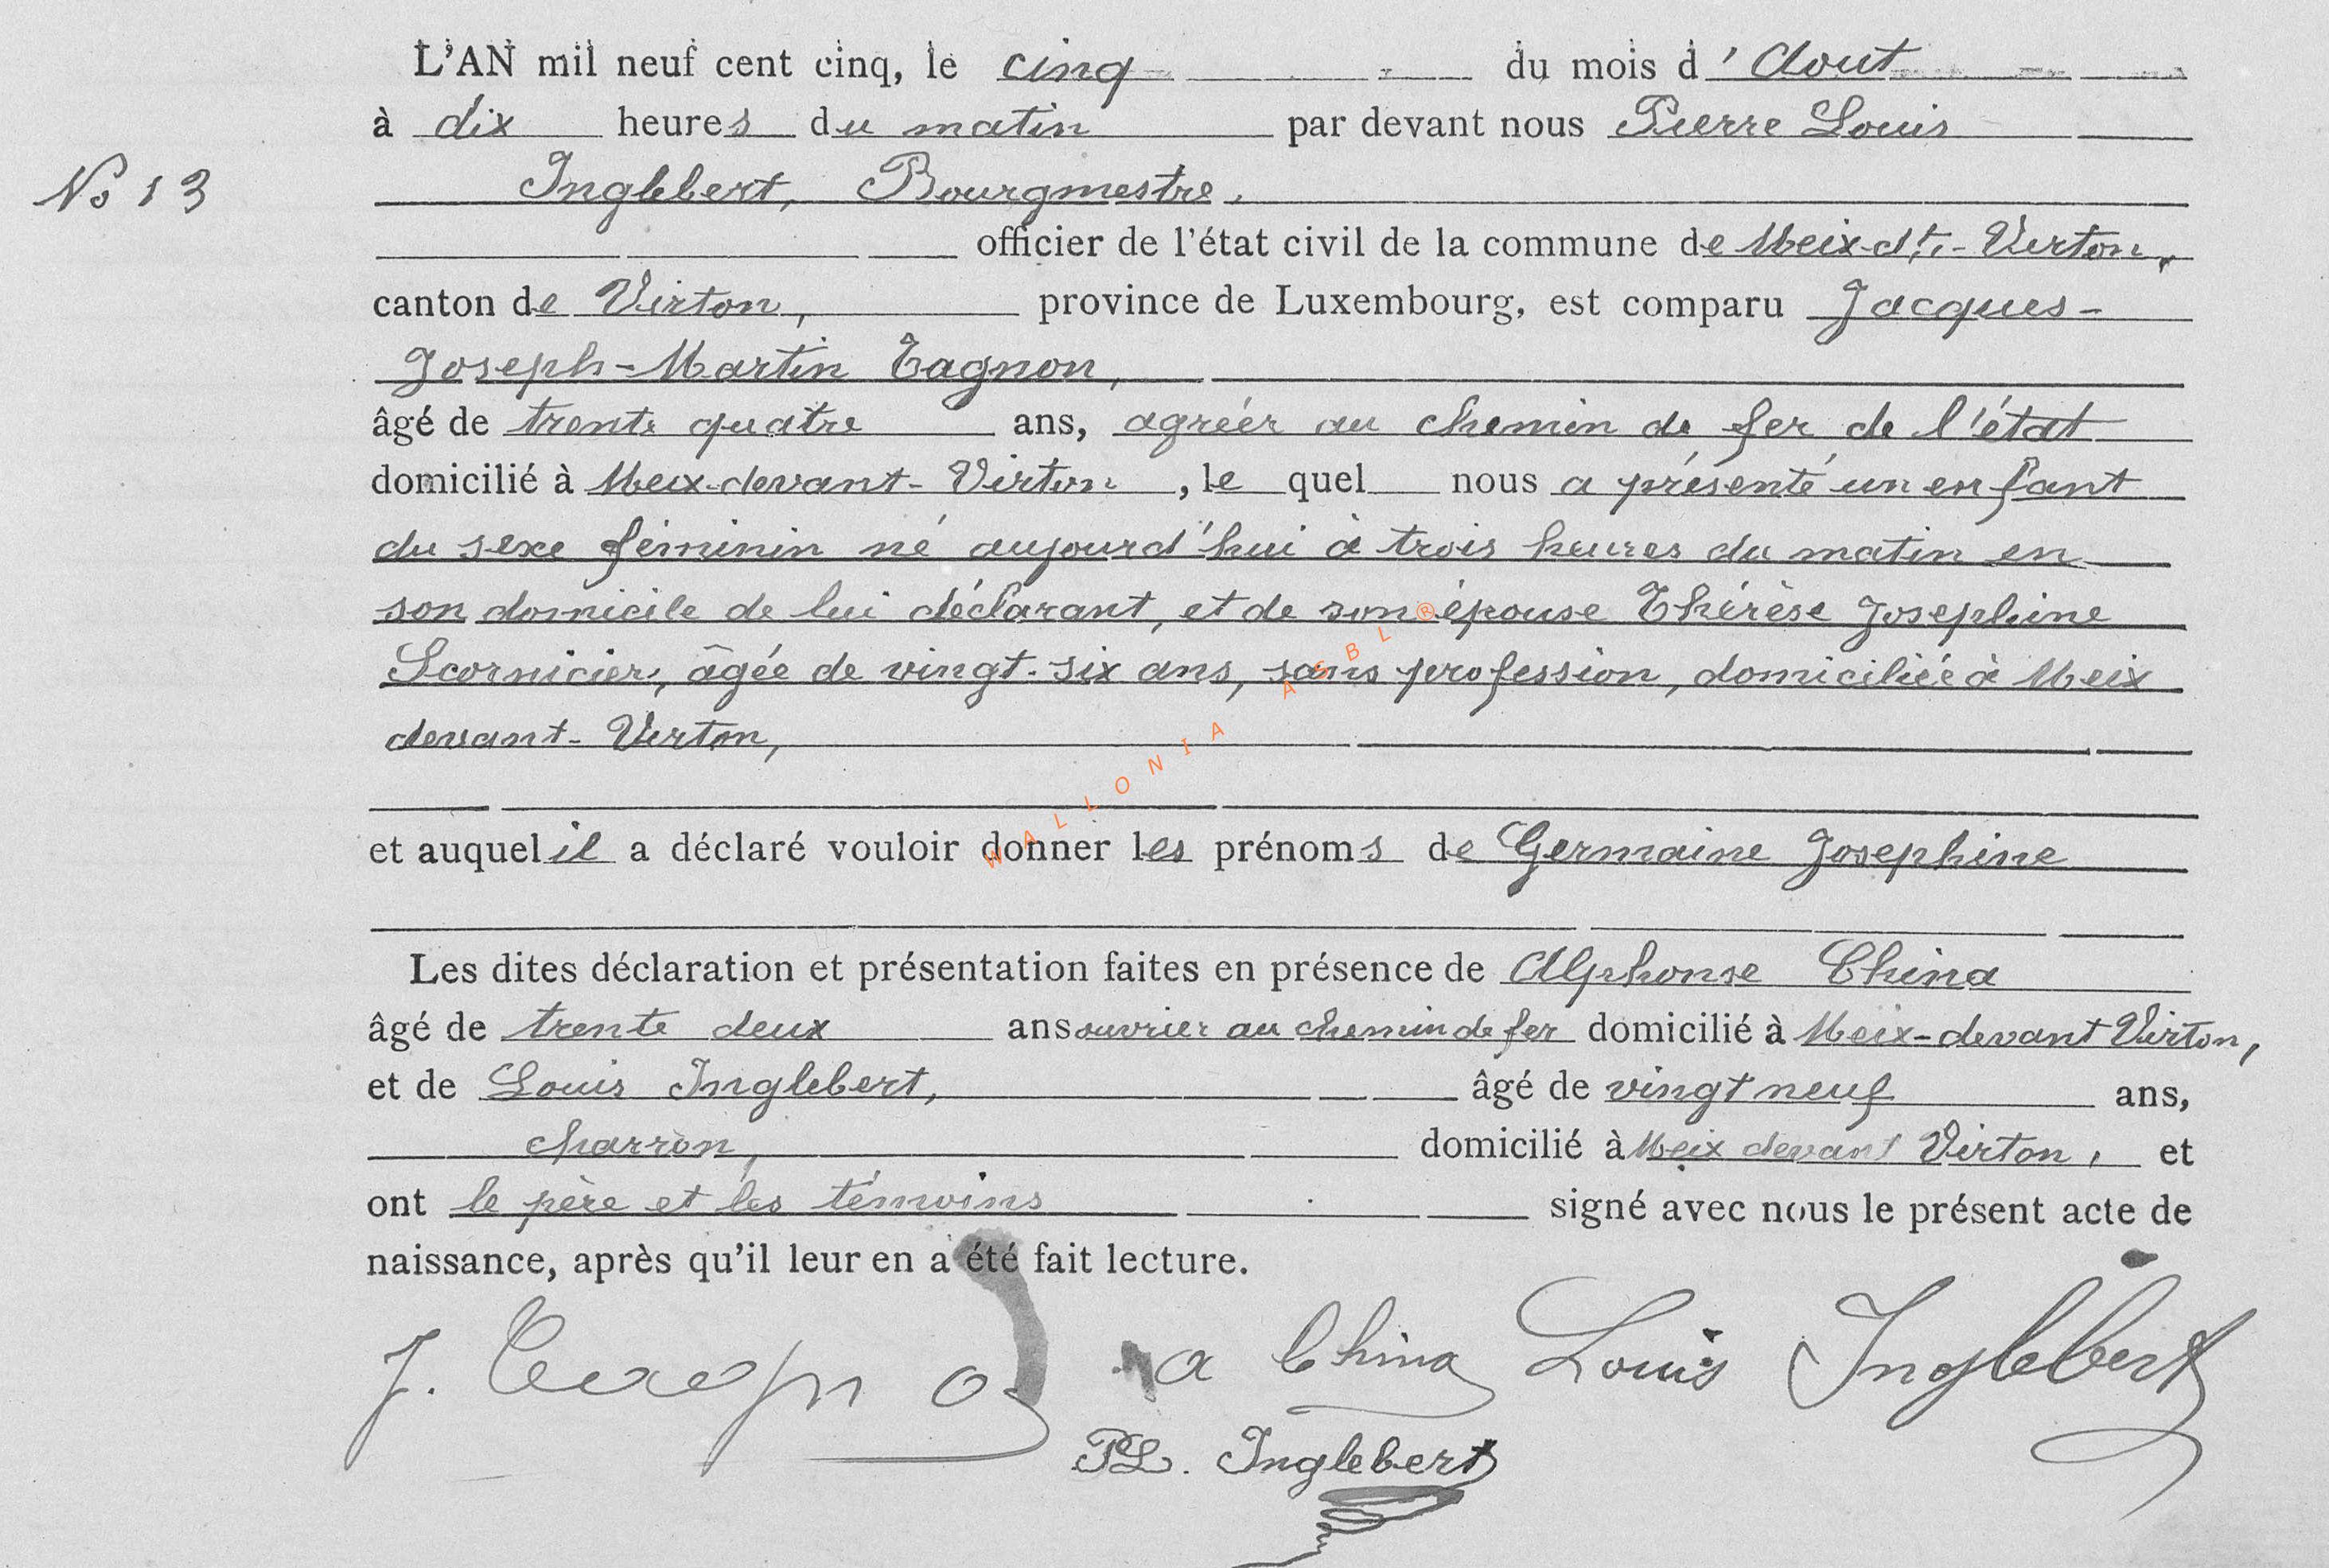 L'AN mil neuf cent cinq, le cinq du mois d'Aout
à dix heures du matin par devant nous Pierre Louis
No 13
Inglebert, Bourgmestre,
officier de l'état civil de la commune de Meix-dt.-Virton,
canton de Virton, province de Luxembourg, est comparu Jacques-
Joseph-Martin Tagnon,
âgé de trente quatre ans, agréér au chemin de fer de l'état
domicilié à Meix-devant-Virton, le quel nous a présenté un enfant
du sexe féminin né aujourd'hui à trois heures du matin en
son domicile de lui déclarant, et de son épouse Thérèse Josephine
Scornicier, âgée de vingt-six ans, sans profession, domiciliée à Meix
devant-Virton,
et auquel il a déclaré vouloir donner les prénoms de Germaine Josephine
Les dites déclaration et présentation faites en présence de Alphonse China
âgé de trente deux ans ouvrier au chemin de fer domicilié à Meix-devant Virton,
et de Louis Inglebert, âgé de vingt neuf ans,
charron, domicilié à Meix devant Virton, et
ont le père et les témoins signé avec nous le présent acte de
naissance, après qu'il leur en a été fait lecture.
J. Tagnon a China Louis Inglebert
PL. Inglebert
WALLONIA ASBL ®